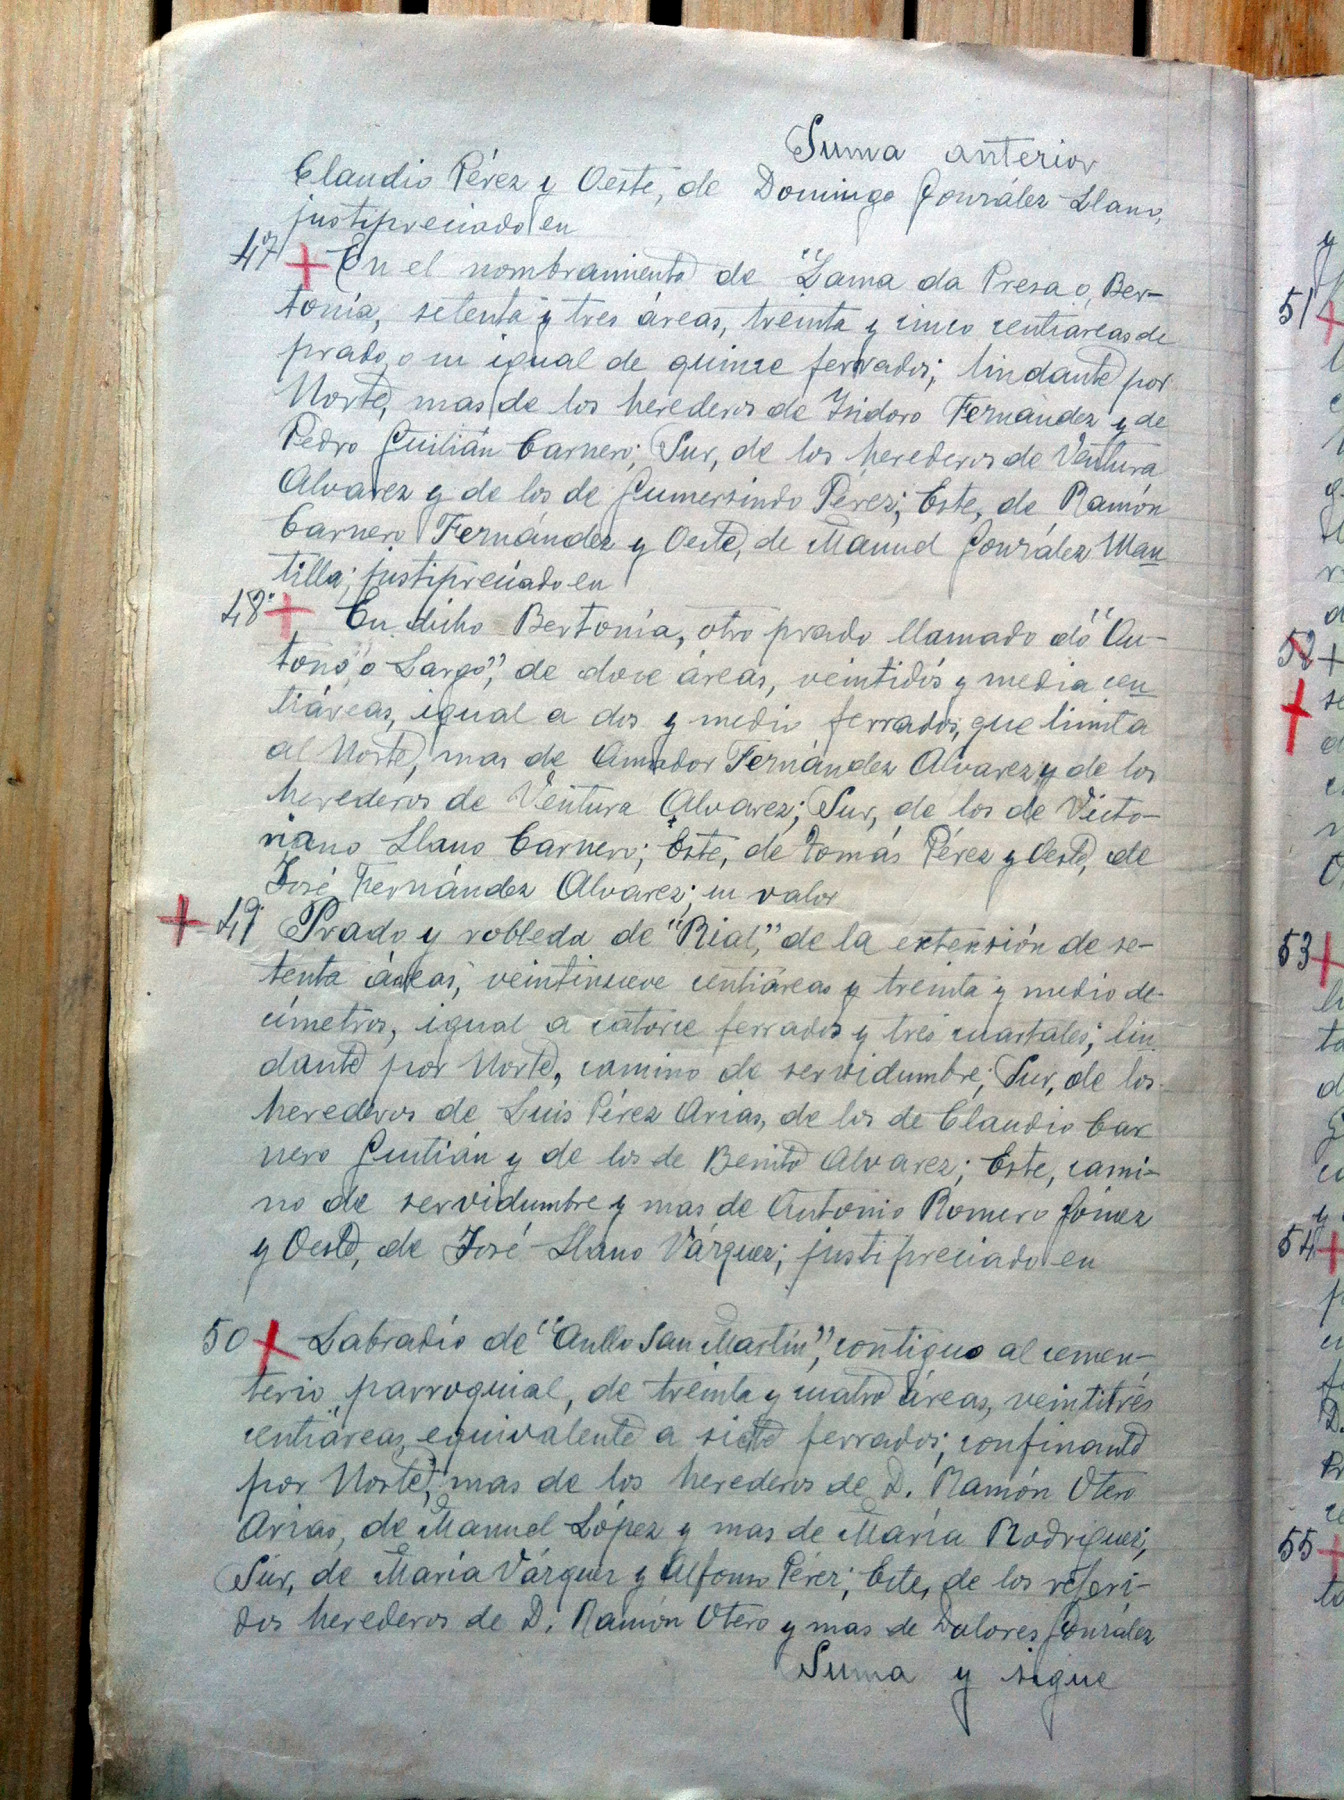 Suma anterior
Claudio Pérez y Oeste, de Domingo González Llano,
justipreciado en
47º + En el nombramiento de "Lama da Presa o Ber-
tonía, setenta y tres áreas, treinta y cinco centiáreas de
prado, o su igual de quince ferrados; lindante por
Norte, mas de los herederos de Isidoro Fernández y de
Pedro Guitián Carnero; Sur, de los herederos de Ventura
Alvarez y de los de Gumersindo Pérez; Este, de Ramón
Carnero Fernández y Oeste, de Manuel González Man
tilla; justipreciado en
48º + En dicho Bertonía, otro prado llamado do "Ou-
tono, o Largo", de doce áreas, veintidós y media cen
tiáreas, igual a dos y medio ferrados, que limita
al Norte, mas de Amador Fernández Alvarez y de los
herederos de Ventura Alvarez; Sur, de los de Victo-
riano Llano Carnero; Este, de Tomás Pérez y Oeste, de
José Fernández Alvarez; su valor
+ 49º Prado y robleda de "Rial," de la extensión de se-
tenta áreas, veintinueve centiáreas y treinta y medio de-
címetros, igual a catorce ferrados y tres cuartales; lin
dante por Norte, camino de servidumbre; Sur, de los
herederos de Luis Pérez Arias, de los de Claudio Car
nero Guitián y de los de Benito Alvarez; Este, cami-
no de servidumbre y mas de Antonio Romero Gómez
y Oeste, de José Llano Várquez; justipreciado en
50 + Labradío de San Martín", contiguo al cemen-
terio parroquial, de treinta y cuatro áreas, veintitrés
centiáreas, equivalente a siete ferrados; confinante
por Norte, mas de los herederos de D. Ramón Otero
Arias, de Manuel López y mas de María Rodríguez;
Sur, de María Várquez y Alfonso Pérez; Este, de los referi-
dos herederos de D. Ramón Otero y mas de Dolores González
Suma y sigue
51 +
52 +
+
53 +
54 +
55 +